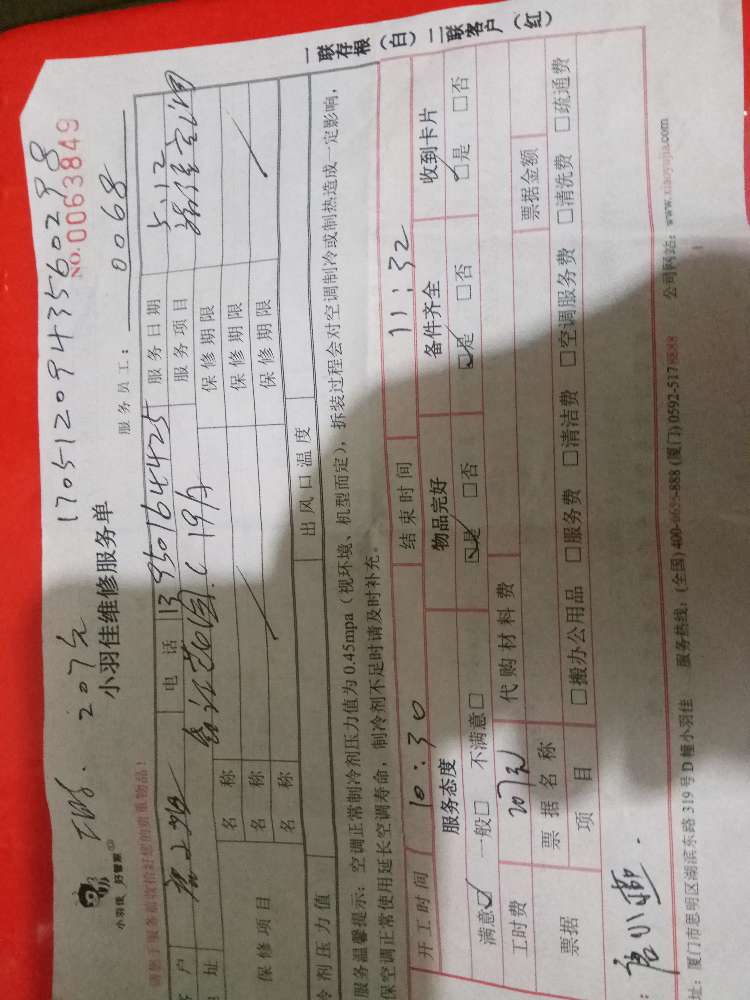 一联存根（白） 二联客户（红）
207元 1705120943560298
小羽佳 好管家
小羽佳维修服务单
NO.0063849
服务员工： 0068
请您于服务前收拾好您的贵重物品！
户 电话 13950164425 服务日期 5.12
址 服务项目
保修项目 名称 保修期限
名称 保修期限
名称 保修期限
冷剂压力值 出风口温度
服务温馨提示：空调正常制冷剂压力值为0.45mpa（视环境、机型而定），拆装过程会对空调制冷或制热造成一定影响，
保空调正常使用延长空调寿命，制冷剂不足时请及时补充。
开工时间 10:30 结束时间 11:32
服务态度 物品完好 备件齐全 收到卡片
满意☑ 一般□ 不满意□ ☑是 □否 ☑是 □否 ☑是 □否
工时费 207元 代购材料费
票据 票据名称 票据金额
项目 □搬办公用品 □服务费 □清洁费 □空调服务费 □清洗费 □疏通费
址：厦门市思明区湖滨东路319号D幢小羽佳 服务热线：(全国)400-0695-888 (厦门)0592-5178888 公司网站：www.xiaoyujia.com